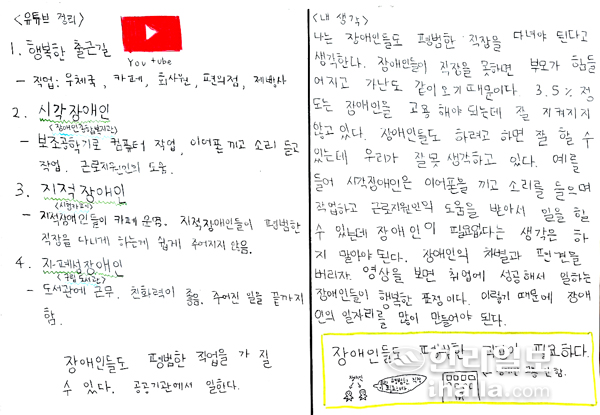 <유튜브 정리>
You tube
1. 행복한 출근길
- 직업 : 우체국, 카페, 회사원, 편의점, 제빵사
2. 시각장애인
- 보조공학기로 컴퓨터 작업, 이어폰 끼고 소리 듣고
작업. 근로지원인의 도움.
3. 지적장애인
- 지적장애인들이 카페 운영. 지적장애인들이 평범한
직장을 다니게 하는게 쉽게 주어지지 않음.
4. 자폐성장애인
- 도서관에 근무. 친화력이 좋음. 주어진 일을 끝까지
함.
장애인들도 평범한 직업을 가질
수 있다. 공공기관에서 일한다.
<내 생각>
나는 장애인들도 평범한 직장을 다녀야 된다고
생각한다. 장애인들이 직장을 못하면 부모가 힘들
어지고 가난도 같이 오기 때문이다. 3.5% 정
도는 장애인을 고목 해야 되는데 잘 지켜지지
않고 있다. 장애인들도 하려고 하면 잘 할 수
있는데 우리가 잘못 생각하고 있다. 예를
들어 시각장애인은 이어폰을 끼고 소리를 들으며
작업하고 근로지원인의 도움을 받아서 일을 할
수 있는데 장애인이 필요없다는 생각은 하
지 말아야 된다. 장애인의 차별과 편견들
버리자. 영상을 보면 취업에 성공해서 일하는
장애인들이 행복한 표정이다. 이렇기 때문에 장애
인의 일자리를 많이 만들어야 된다.
장애인들도 평범한 직업이 필요하다.
한라일보
ihalla.com